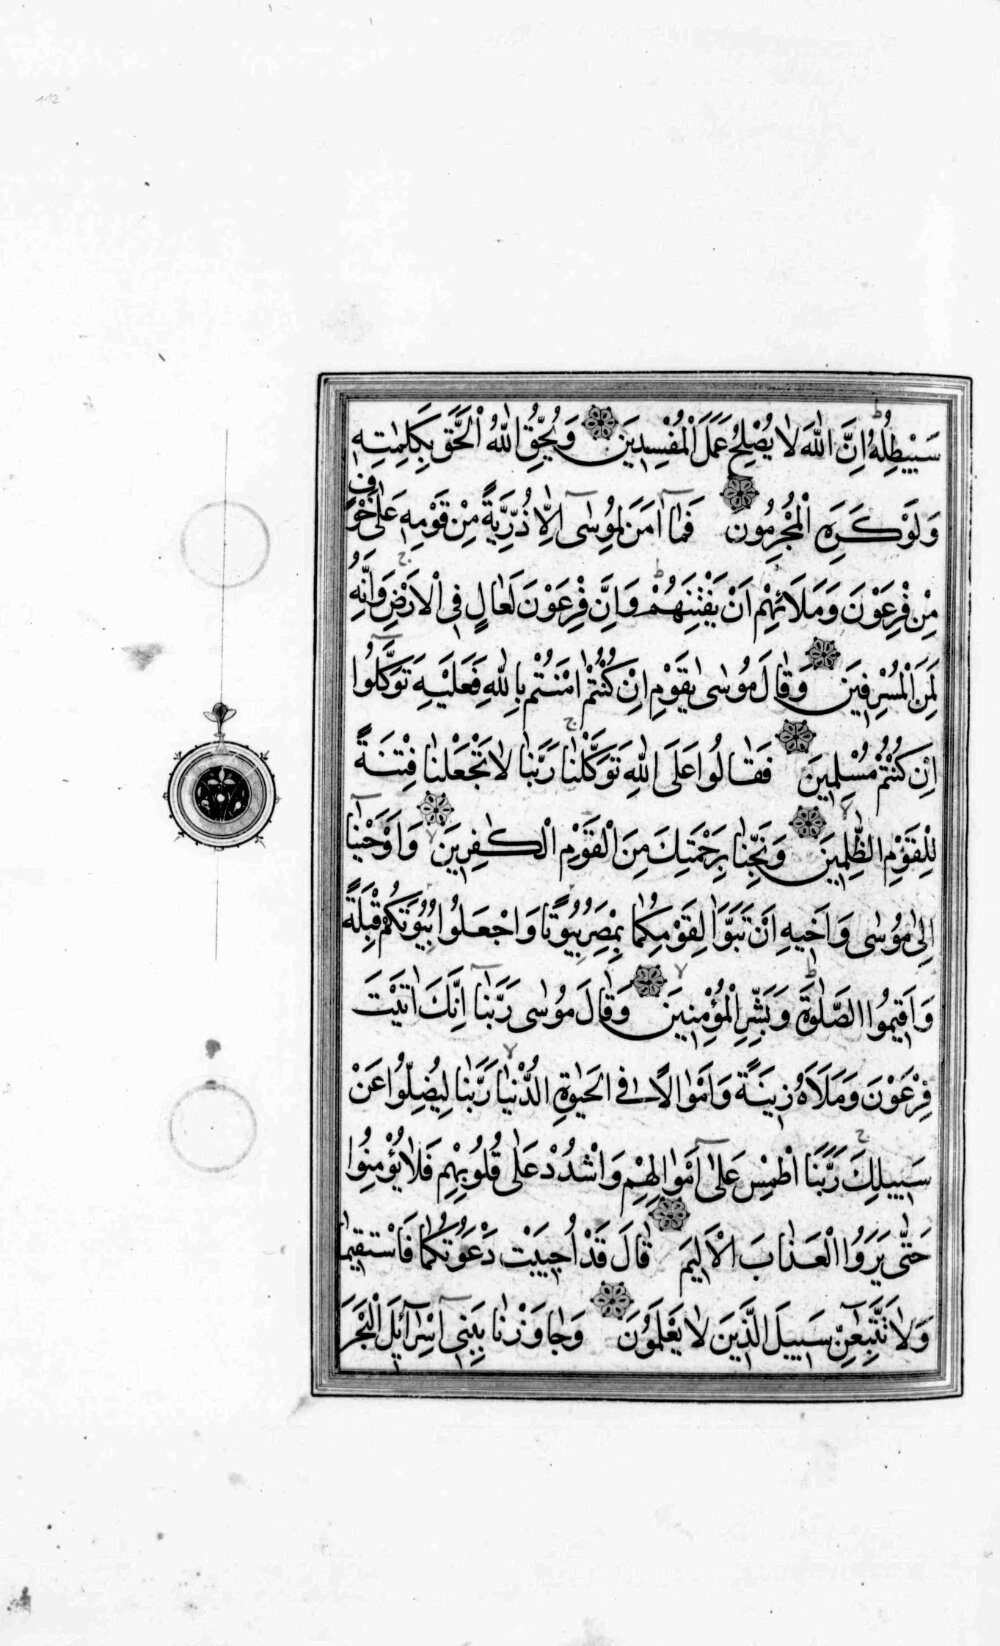 سَيُبْطِلُهُ اِنَّ اللّٰهَ لَا يُصْلِحُ عَمَلَ الْمُفْسِدِينَ وَيُحِقُّ اللّٰهُ الْحَقَّ بِكَلِمٰتِهِ
وَلَوْ كَرِهَ الْمُجْرِمُونَ فَمَا اٰمَنَ لِمُوسٰى اِلَّا ذُرِّيَّةٌ مِنْ قَوْمِهِ عَلٰى خَوْفٍ
مِنْ فِرْعَوْنَ وَمَلَائِهِمْ اَنْ يَفْتِنَهُمْ وَاِنَّ فِرْعَوْنَ لَعَالٍ فِى الْاَرْضِ وَاِنَّهُ
لَمِنَ الْمُسْرِفِينَ وَقَالَ مُوسٰى يٰقَوْمِ اِنْ كُنْتُمْ اٰمَنْتُمْ بِاللّٰهِ فَعَلَيْهِ تَوَكَّلُوا
اِنْ كُنْتُمْ مُسْلِمِينَ فَقَالُوا عَلَى اللّٰهِ تَوَكَّلْنَا رَبَّنَا لَا تَجْعَلْنَا فِتْنَةً
لِلْقَوْمِ الظّٰلِمِينَ وَنَجِّنَا بِرَحْمَتِكَ مِنَ الْقَوْمِ الْكٰفِرِينَ وَاَوْحَيْنَا
اِلٰى مُوسٰى وَاَخِيهِ اَنْ تَبَوَّاَ لِقَوْمِكُمَا بِمِصْرَ بُيُوتًا وَاجْعَلُوا بُيُوتَكُمْ قِبْلَةً
وَاَقِيمُوا الصَّلٰوةَ وَبَشِّرِ الْمُؤْمِنِينَ وَقَالَ مُوسٰى رَبَّنَا اِنَّكَ اٰتَيْتَ
فِرْعَوْنَ وَمَلَاَهُ زِينَةً وَاَمْوَالًا فِى الْحَيٰوةِ الدُّنْيَا رَبَّنَا لِيُضِلُّوا عَنْ
سَبِيلِكَ رَبَّنَا اطْمِسْ عَلٰى اَمْوَالِهِمْ وَاشْدُدْ عَلٰى قُلُوبِهِمْ فَلَا يُؤْمِنُوا
حَتّٰى يَرَوُا الْعَذَابَ الْاَلِيمَ قَالَ قَدْ اُجِيبَتْ دَعْوَتُكُمَا فَاسْتَقِيمَا
وَلَا تَتَّبِعَانِّ سَبِيلَ الَّذِينَ لَا يَعْلَمُونَ وَجَاوَزْنَا بِبَنِى اِسْرَائِلَ الْبَحْرَ